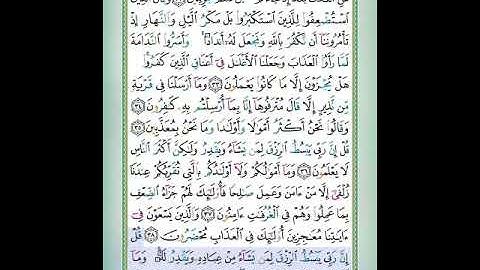 ٱسۡتُضۡعِفُوا۟ لِلَّذِينَ ٱسۡتَكۡبَرُوا۟ بَلۡ مَكۡرُ ٱلَّيۡلِ وَٱلنَّهَارِ إِذۡ
تَأۡمُرُونَنَآ أَن نَّكۡفُرَ بِٱللَّهِ وَنَجۡعَلَ لَهُۥٓ أَندَادًا ۚ وَأَسَرُّوا۟ ٱلنَّدَامَةَ
لَمَّا رَأَوُا۟ ٱلۡعَذَابَ وَجَعَلۡنَا ٱلۡأَغۡلَـٰلَ فِىٓ أَعۡنَاقِ ٱلَّذِينَ كَفَرُوا۟
هَلۡ يُجۡزَوۡنَ إِلَّا مَا كَانُوا۟ يَعۡمَلُونَ ٣٣ وَمَآ أَرۡسَلۡنَا فِى قَرۡيَةٍ
مِّن نَّذِيرٍ إِلَّا قَالَ مُتۡرَفُوهَآ إِنَّا بِمَآ أُرۡسِلۡتُم بِهِۦ كَـٰفِرُونَ ٣٤
وَقَالُوا۟ نَحۡنُ أَكۡثَرُ أَمۡوَٰلًا وَأَوۡلَـٰدًا وَمَا نَحۡنُ بِمُعَذَّبِينَ ٣٥
قُلۡ إِنَّ رَبِّى يَبۡسُطُ ٱلرِّزۡقَ لِمَن يَشَآءُ وَيَقۡدِرُ وَلَـٰكِنَّ أَكۡثَرَ ٱلنَّاسِ
لَا يَعۡلَمُونَ ٣٦ وَمَآ أَمۡوَٰلُكُمۡ وَلَآ أَوۡلَـٰدُكُم بِٱلَّتِى تُقَرِّبُكُمۡ عِندَنَا
زُلۡفَىٰٓ إِلَّا مَنۡ ءَامَنَ وَعَمِلَ صَـٰلِحًا فَأُو۟لَـٰٓئِكَ لَهُمۡ جَزَآءُ ٱلضِّعۡفِ
بِمَا عَمِلُوا۟ وَهُمۡ فِى ٱلۡغُرُفَـٰتِ ءَامِنُونَ ٣٧ وَٱلَّذِينَ يَسۡعَوۡنَ فِىٓ
ءَايَـٰتِنَا مُعَـٰجِزِينَ أُو۟لَـٰٓئِكَ فِى ٱلۡعَذَابِ مُحۡضَرُونَ ٣٨ قُلۡ
إِنَّ رَبِّى يَبۡسُطُ ٱلرِّزۡقَ لِمَن يَشَآءُ مِنۡ عِبَادِهِۦ وَيَقۡدِرُ لَهُۥ ۚ وَمَآ